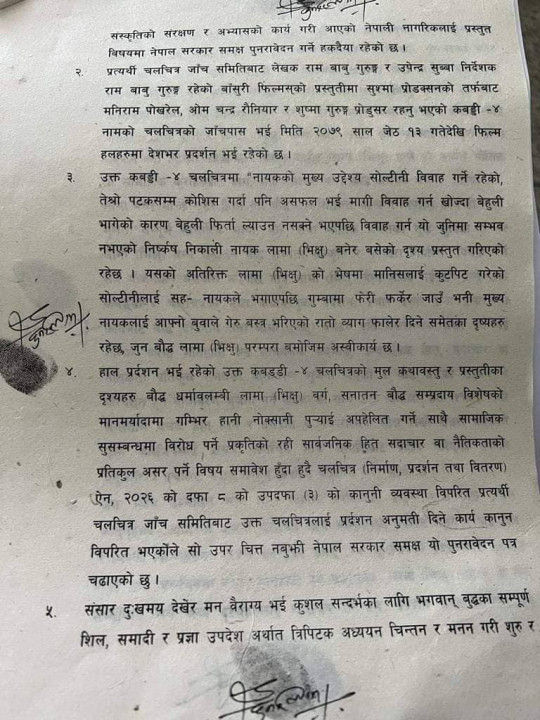 संस्कृतिको संरक्षण र अभ्यासको कार्य गरी आएको नेपाली नागरिकलाई प्रस्तुत
विषयमा नेपाल सरकार समक्ष पुनरावेदन गर्ने हकदैया रहेको छ ।
२. प्रत्यर्थी चलचित्र जाँच समितिबाट लेखक राम बाबु गुरुङ्ग र उपेन्द्र सुब्बा निर्देशक
राम बाबु गुरुङ्ग रहेको बाँसुरी फिल्मस्को प्रस्तुतीमा सुश्मा प्रोडक्सनको तर्फबाट
मनिराम पोखरेल, ओम चन्द्र रौनियार र शुष्मा गुरुङ्ग प्रोडुसर रहनु भएको कबड्डी -४
नामको चलचित्रको जाँचपास भई मिति २०७९ साल जेठ १३ गतेदेखि फिल्म
हलहरुमा देशभर प्रदर्शन भई रहेको छ ।
३. उक्त कबड्डी -४ चलचित्रमा "नायकको मुख्य उद्देश्य सोल्टीनी विवाह गर्ने रहेको,
तेश्रो पटकसम्म कोशिस गर्दा पनि असफल भई मागी विवाह गर्न खोज्दा बेहुली
भागेको कारण बेहुली फिर्ता ल्याउन नसक्ने भएपछि विवाह गर्न यो जुनिमा सम्भव
नभएको निष्कर्ष निकाली नायक लामा (भिक्षु) बनेर बसेको दृश्य प्रस्तुत गरिएको
रहेछ । यसको अतिरिक्त लामा (भिक्षु) को भेषमा मानिसलाई कुटपिट गरेको
सोल्टीनीलाई सह- नायकले भगाएपछि गुम्बामा फेरी फर्केर जाउँ भनी मुख्य
नायकलाई आफ्नो बुवाले गेरु वस्त्र भरिएको रातो व्याग फालेर दिने समेतका दृष्यहरु
रहेछ, जुन बौद्ध लामा (भिक्षु) परम्परा बमोजिम अस्वीकार्य छ ।
४. हाल प्रर्दशन भई रहेको उक्त कबड्डी -४ चलचित्रको मुल कथावस्तु र प्रस्तुतीका
दृश्यहरु बौद्ध धर्मावलम्वी लामा (भिक्षु) वर्ग, सनातन बौद्ध सम्प्रदाय विशेषको
मानमर्यादामा गम्भिर हानी नोक्सानी पुर्‍याई अपहेलित गर्ने साथै सामाजिक
सुसम्बन्धमा विरोध पर्ने प्रकृतिको रही सार्वजनिक हित सदाचार वा नैतिकताको
प्रतिकुल असर पर्ने विषय समावेश हुँदा हुदै चलचित्र (निर्माण, प्रदर्शन तथा वितरण)
ऐन, २०२६ को दफा ८ को उपदफा (३) को कानुनी व्यवस्था विपरित प्रत्यर्थी
चलचित्र जाँच समितिबाट उक्त चलचित्रलाई प्रर्दशन अनुमती दिने कार्य कानुन
विपरित भएकोले सो उपर चित्त नबुझी नेपाल सरकार समक्ष यो पुनरावेदन पत्र
चढाएको छु ।
५. संसार दुःखमय देखेर मन वैराग्य भई कुशल सन्दर्भका लागि भगवान् बुद्धका सम्पूर्ण
शिल, समादी र प्रज्ञा उपदेश अर्थात त्रिपिटक अध्ययन चिन्तन र मनन गरी शुरु र